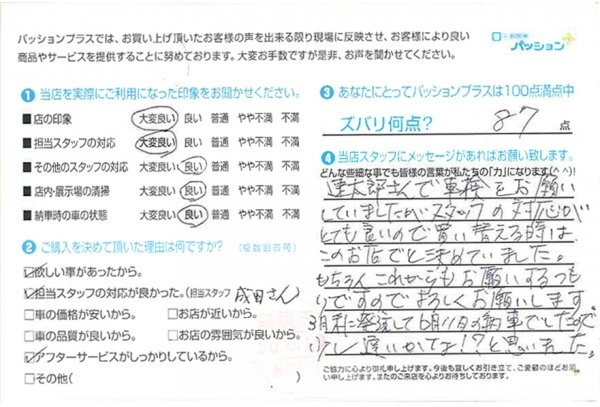 パッションプラスでは、お買い上げ頂いたお客様の声を出来る限り現場に反映させ、お客様により良い
商品やサービスを提供することに努めております。大変お手数ですが是非、お声を聞かせてください。
パッション+
① 当店を実際にご利用になった印象をお聞かせください。
■ 店の印象 大変良い 良い 普通 やや不満 不満
■ 担当スタッフの対応 大変良い 良い 普通 やや不満 不満
■ その他のスタッフの対応 大変良い 良い 普通 やや不満 不満
■ 店内・展示場の清掃 大変良い 良い 普通 やや不満 不満
■ 納車時の車の状態 大変良い 良い 普通 やや不満 不満
② ご購入を決めて頂いた理由は何ですか? (複数回答可)
☑欲しい車があったから。
☑担当スタッフの対応が良かった。(担当スタッフ 成田さん)
□車の価格が安いから。 □お店が近いから。
□車の品質が良いから。 □お店の雰囲気が良いから。
☑アフターサービスがしっかりしているから。
□その他( )
③ あなたにとってパッションプラスは100点満点中
ズバリ何点? 87 点
④ 当店スタッフにメッセージがあればお願い致します。
どんな些細な事でも皆様の言葉が私たちの「力」になります(^^)!
連太郎さんで車検をお願い
していましたがスタッフの対応が
とても良いので買い替える時は
このお店でと決めていました。
もちろんこれからもお願いするつも
りですのでよろしくお願いします。
3月末に発注して6月11日の納車でしたので
遅いかなぁ!?と思いました。
ご協力に心より御礼申し上げます。今後も宜しくお引き立て、ご愛顧のほどお願
い申し上げます。またのご来店を心よりお待ちしております。